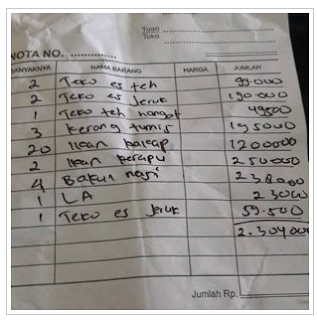 Tuan
Toko
NOTA NO.
ANYAKNYA NAMA BARANG HARGA JUMLAH
2 Teko es teh 99.000
2 Teko es Jeruk 190.000
1 Teko teh hangat 49500
3 kerang tumis 195000
20 Ikan kakap 1200000
2 Ikan kerapu 250.000
4 Bakul nasi 238000
1 LA 23000
1 Teko es Jeruk 59.500
2.304.000
Jumlah Rp.